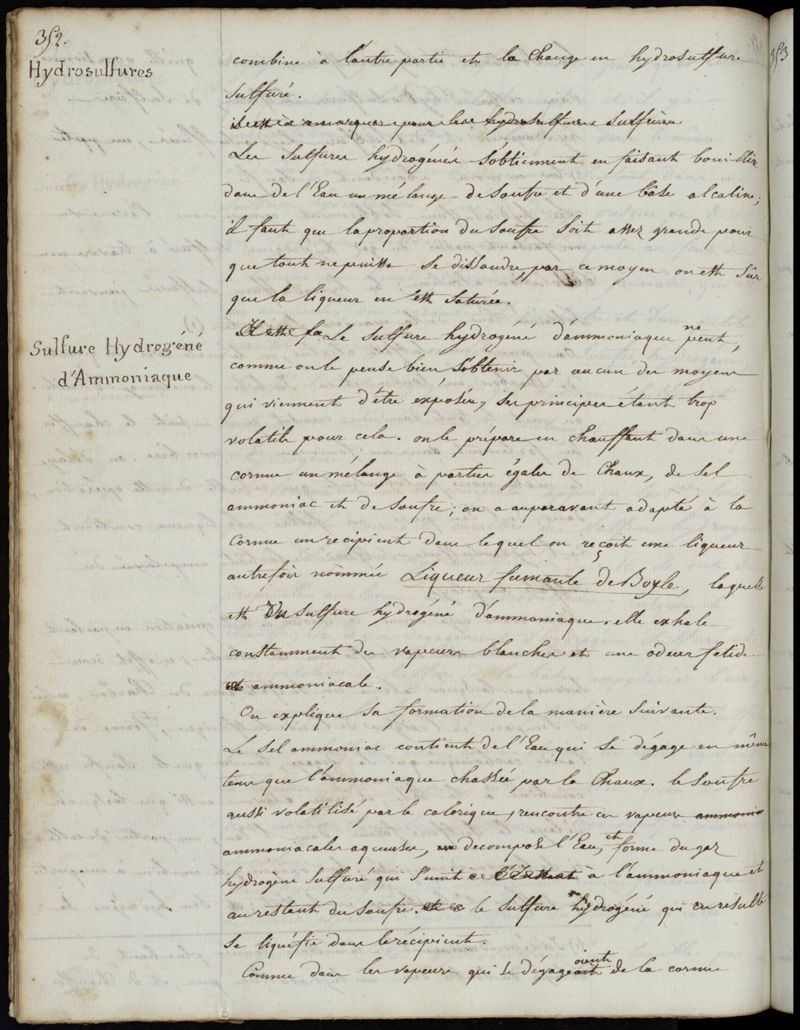 352.
Hydrosulfures
combine à l'autre partie et la Change en hydrosulfure
sulfuré.
il est à remarquer pour les hydrosulfures sulfurés
Les sulfures hydrogénés s'obtiennent en faisant bouillir
dans de l'Eau un mélange de soufre et d'une base alcaline;
il faut que la proportion du soufre soit assez grande pour
que tout ne puisse se dissoudre, par ce moyen on est sûr
que la liqueur en est saturée.
Sulfure Hydrogéné
d'Ammoniaque
Il est fa Le sulfure hydrogéné d'ammoniaque ne peut,
comme on le pense bien s'obtenir par aucun des moyens
qui viennent d'être exposés, ses principes étant trop
volatils pour cela. on le prépare en chauffant dans une
cornue un mélange à parties égales de Chaux, de sel
ammoniac et de soufre; on a auparavant adapté à la
cornue un recipient dans lequel on reçoit une liqueur
autrefois nommée Liqueur fumante de Boyle, laquelle
est Un sulfure hydrogéné d'ammoniaque. elle exhale
constamment des vapeurs blanches et une odeur fetide
et ammoniacale.
On explique sa formation de la manière suivante.
Le sel ammoniac contient de l'Eau qui se dégage en même
tems que l'ammoniaque chassée par la Chaux. le soufre
aussi volatilisé par le calorique, rencontre ces vapeurs ammonia
ammoniacales aqueuses, decompose l'Eau, et forme du gaz
hydrogène sulfuré qui s'unit à l'ammoniaque et
au restant du soufre. le sulfure hydrogéné qui en resulte
se liquéfie dans le récipient.
Comme dans les vapeurs qui se dégageoient de la cornue
353